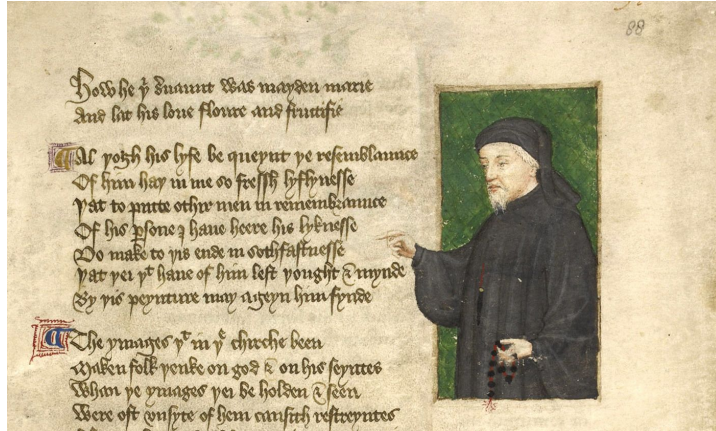 88
How he þᵗ ẜuaunt was mayden marie
And lat his loue floure and fructifie
Al þogh his lyfe be queynt þe resemblaunce
Of him haþ in me so fressh lyflynesse
Þat to putte othir men in remembraunce
Of his ꝑsone I haue heere his lyknesse
Do make to þis ende in sothfastnesse
Þat þei þᵗ haue of him left þought & mynde
By þis peynture may ageyn him fynde
The ymages þᵗ in þᵉ chirche been
Maken folk þenke on god & on his seyntes
Whan þe ymages þei be holden & seen
Were oft vnsyte of hem causith restreyntes